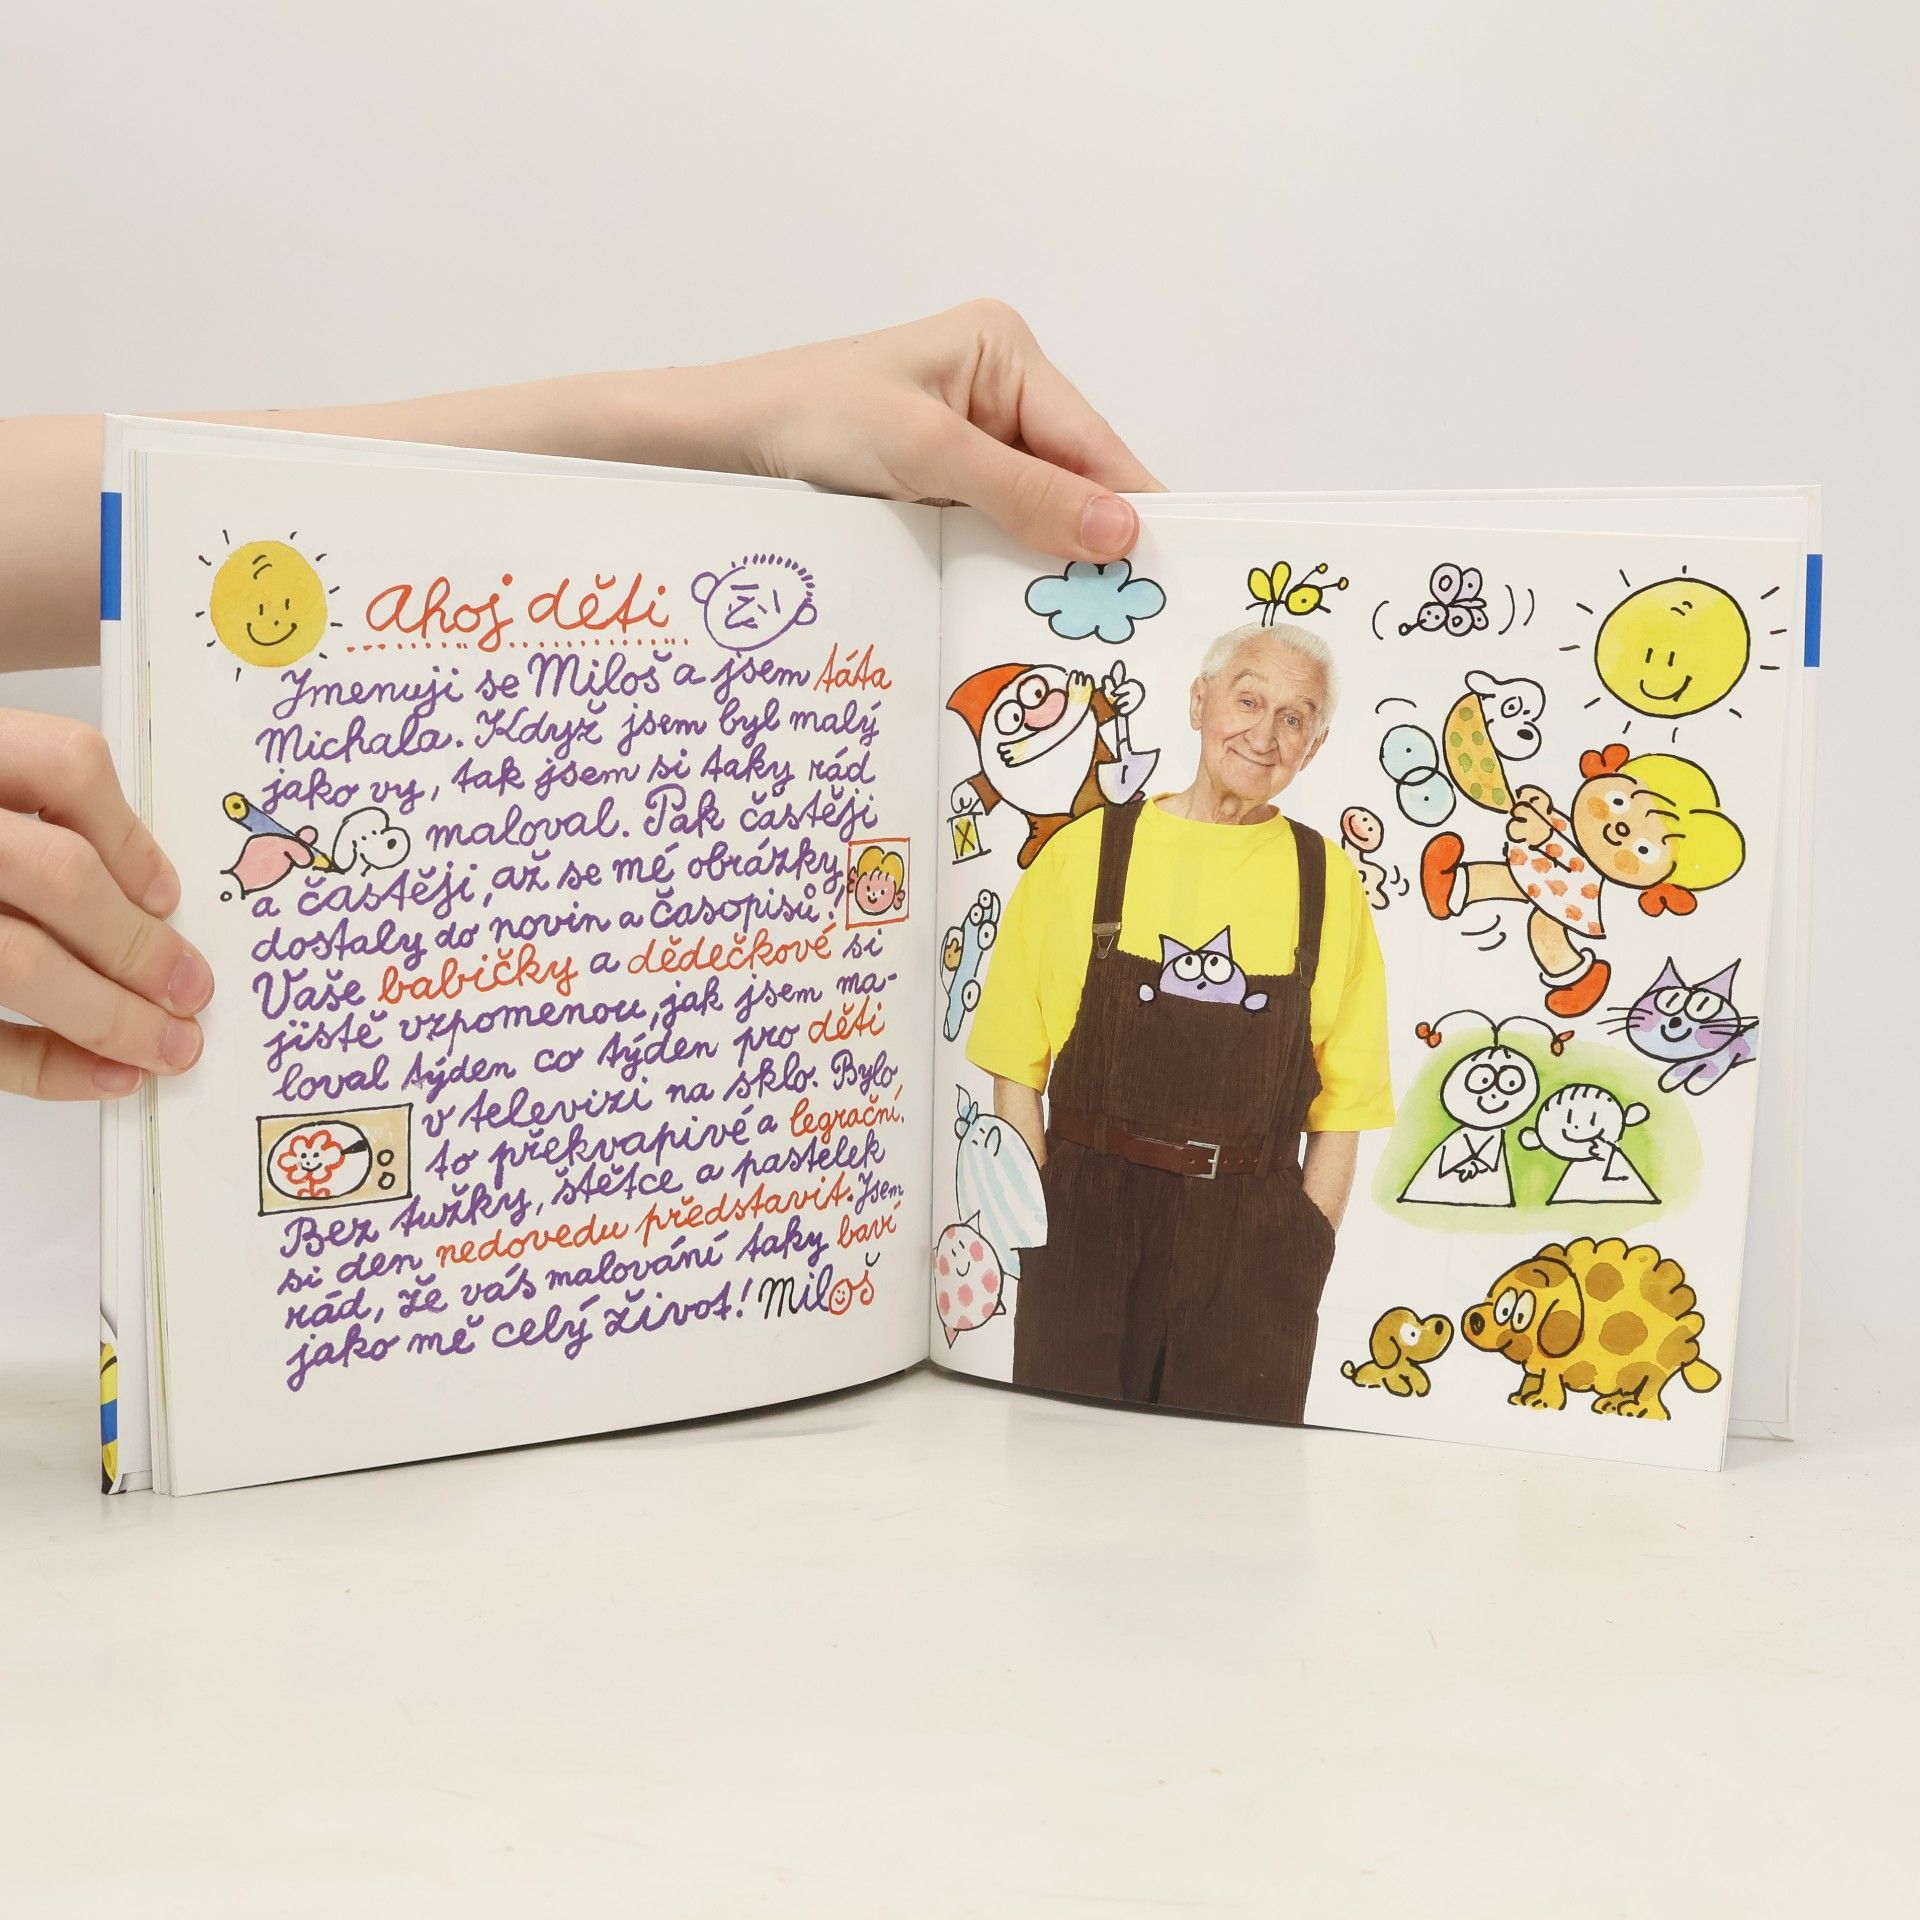 Ahoj děti
Jmenuji se Miloš a jsem táta
Michala. Když jsem byl malý
jako vy, tak jsem si taky rád
maloval. Pak častěji
a častěji, až se mé obrázky
dostaly do novin a časopisů!
Vaše babičky a dědečkové si
jistě vzpomenou, jak jsem ma-
loval týden co týden pro děti
v televizi na sklo. Bylo
to překvapivé a legrační.
Bez tužky, štětce a pastelek
si den nedovedu představit. Jsem
rád, že vás malování taky baví
jako mě celý život! Miloš